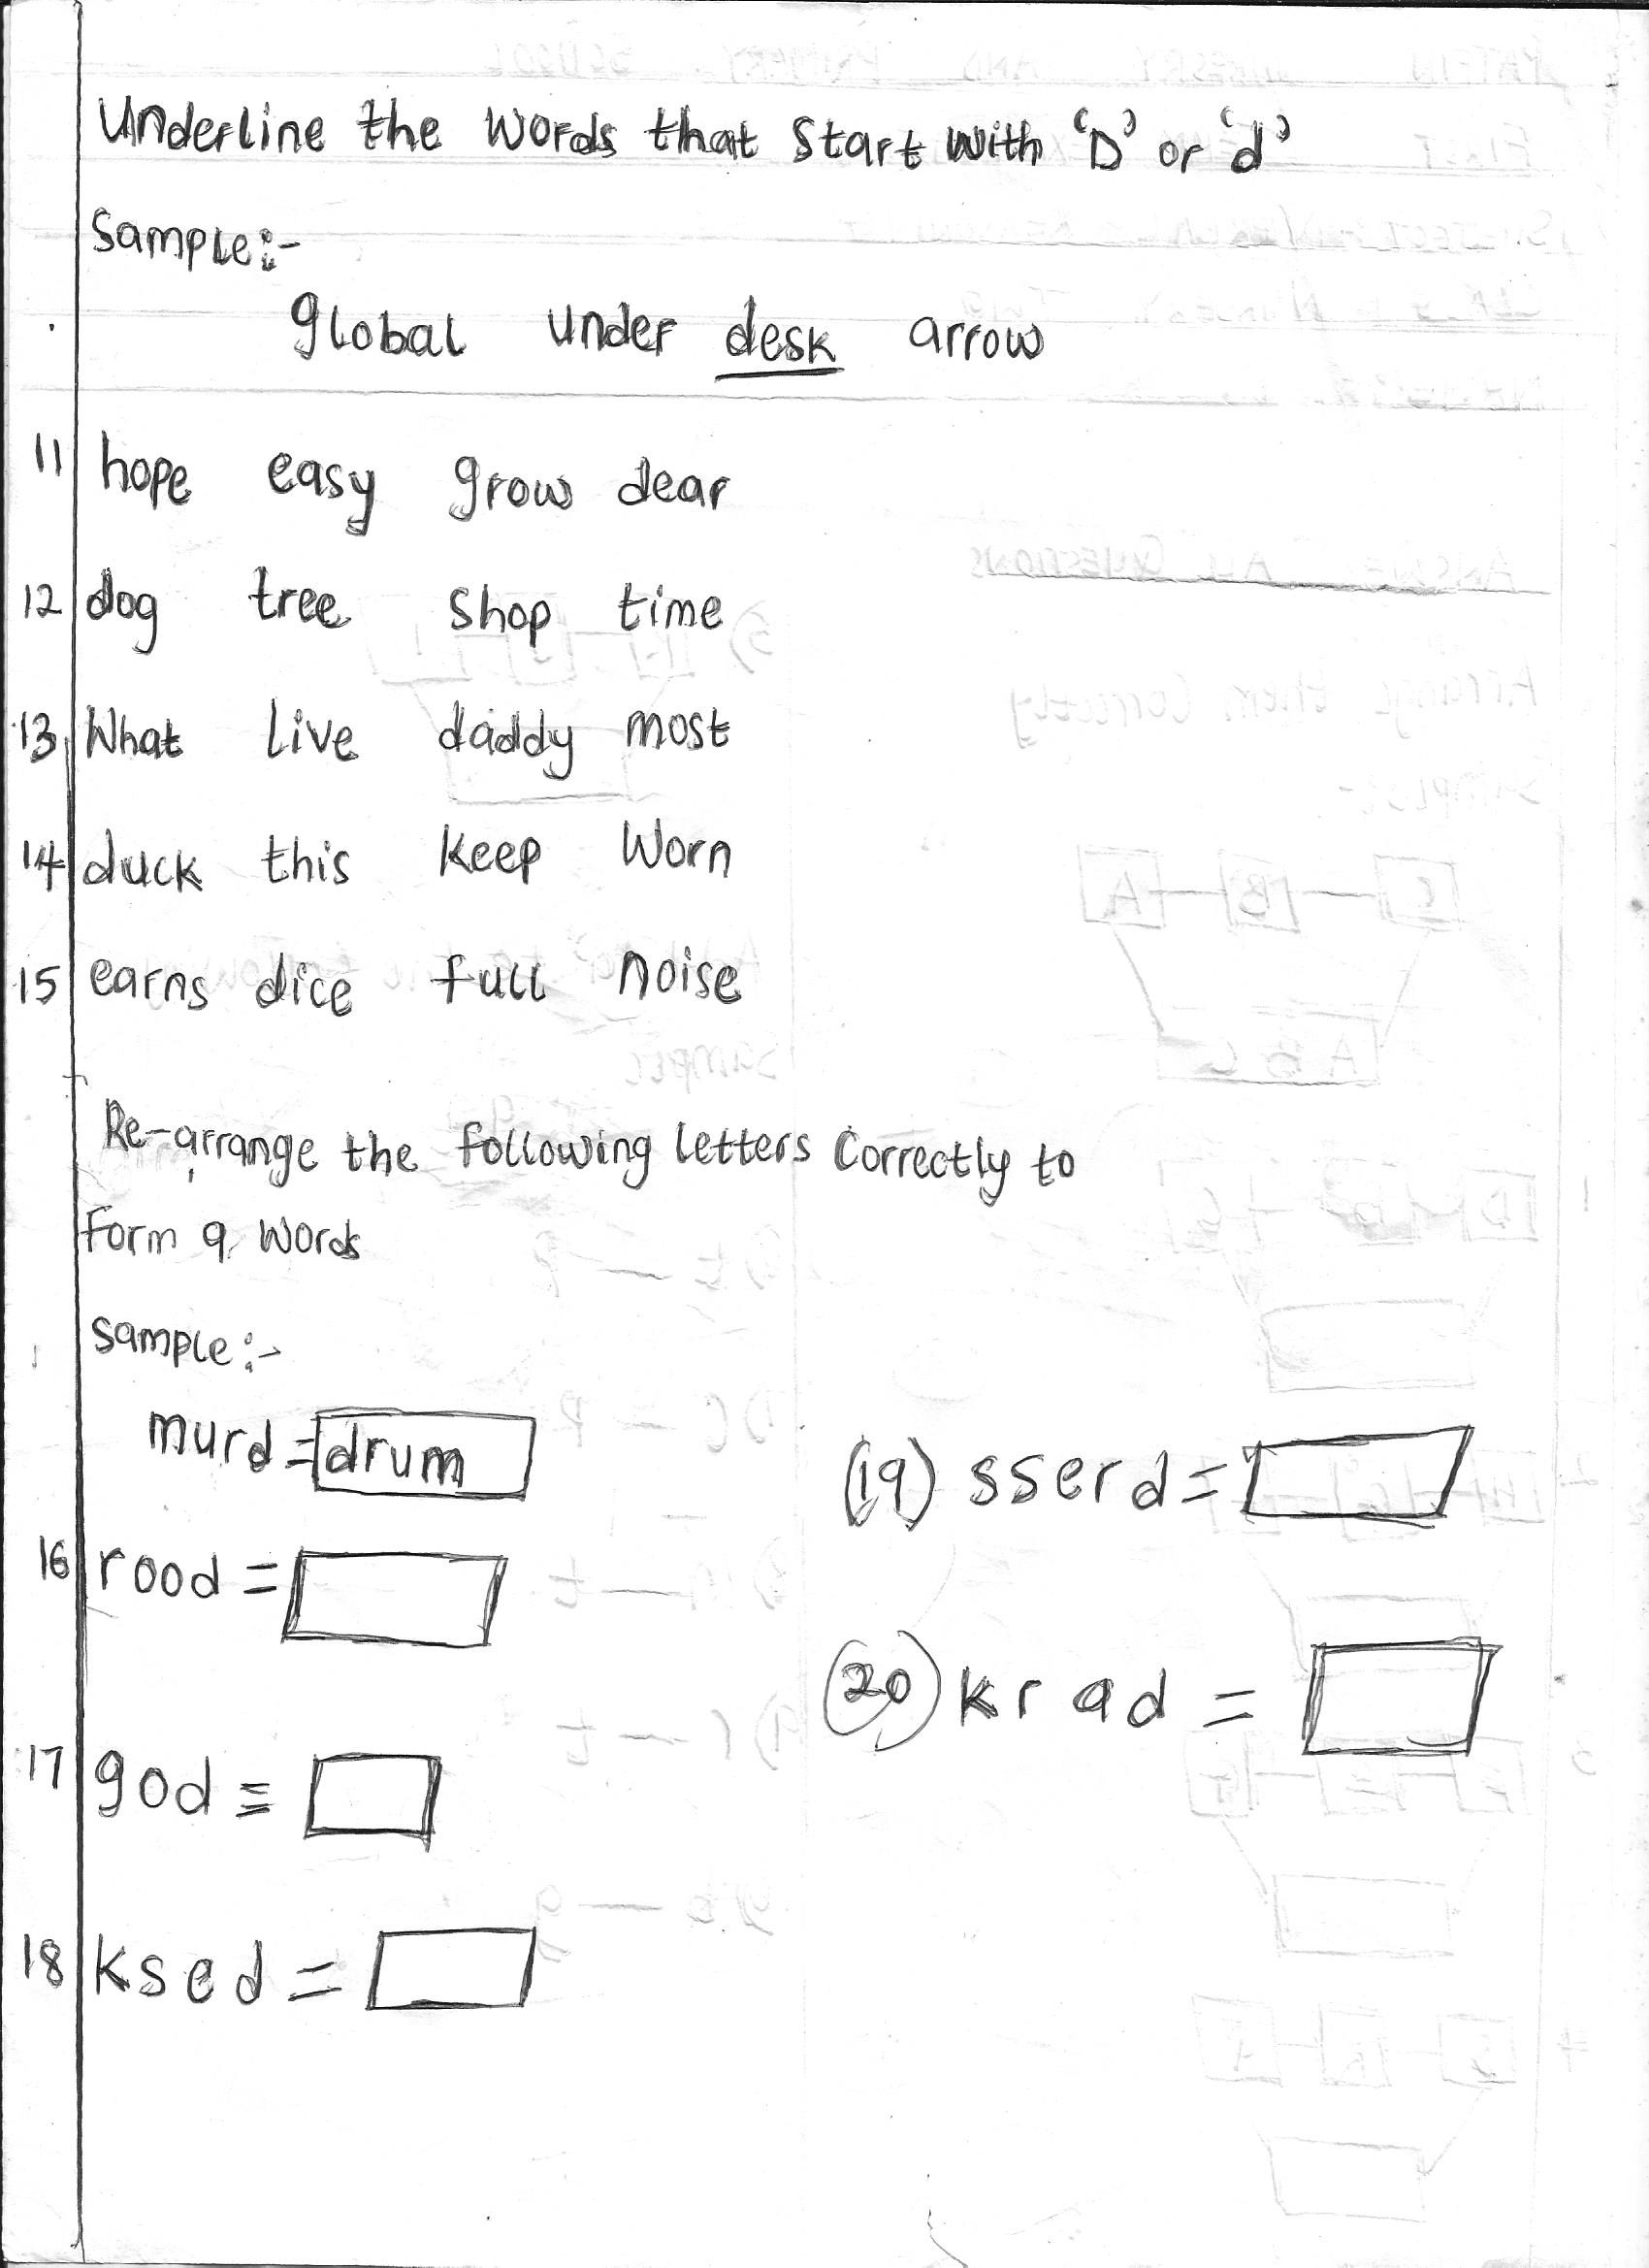 Underline the words that start with 'D' or 'd'
Sample:-
global under desk arrow
11 hope easy grow dear
12 dog tree shop time
13 What live daddy most
14 duck this keep Worn
15 earns dice full noise
Re-arrange the following letters correctly to
form a words
sample:-
murd = drum
16 rood =
17 god =
18 ksed =
(19) sserd =
(20) krad =